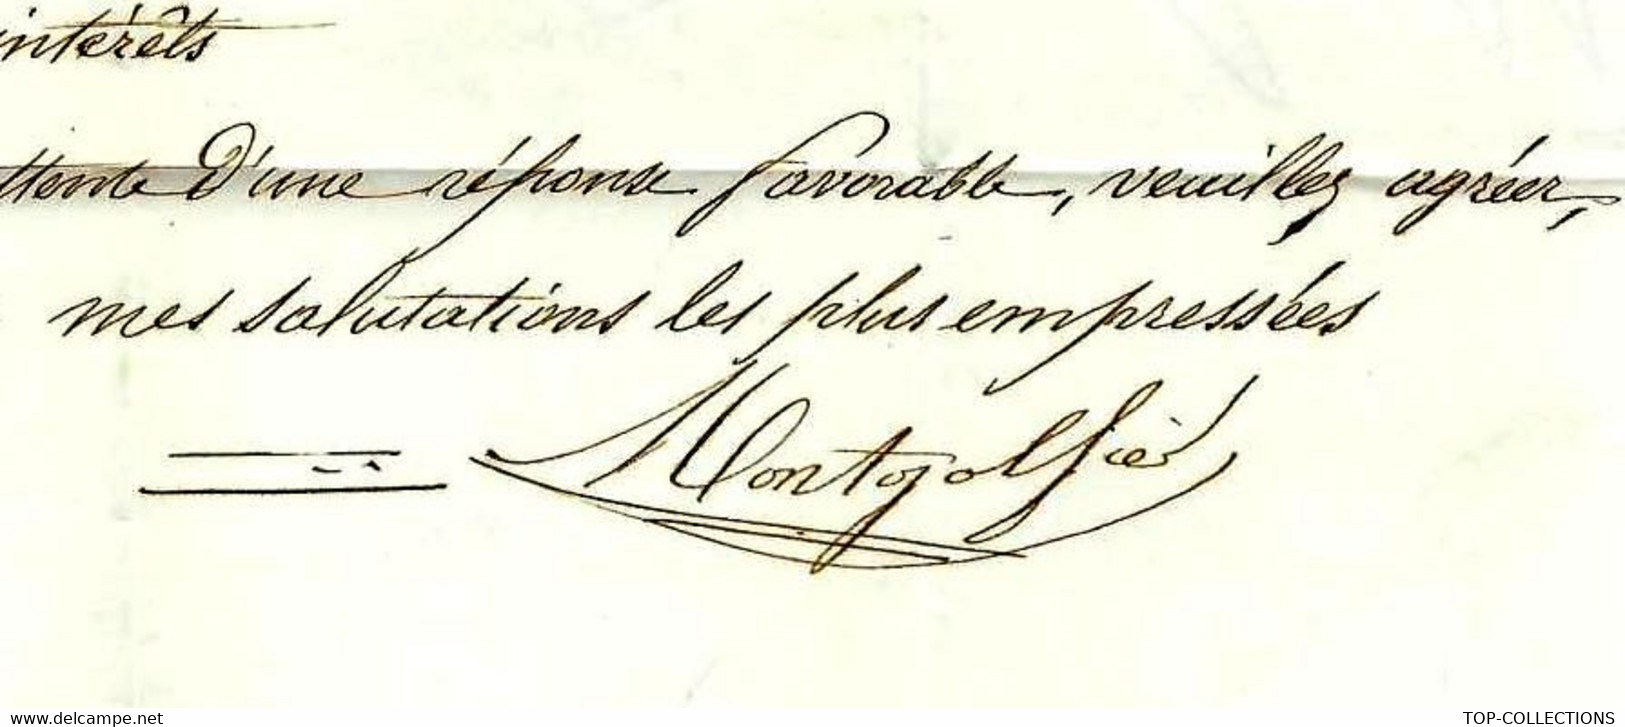 intérêts
ttente d'une réponse favorable, veuillez agréer,
mes salutations les plus empressées
Montgolfier
www.delcampe.net
TOP-COLLECTIONS